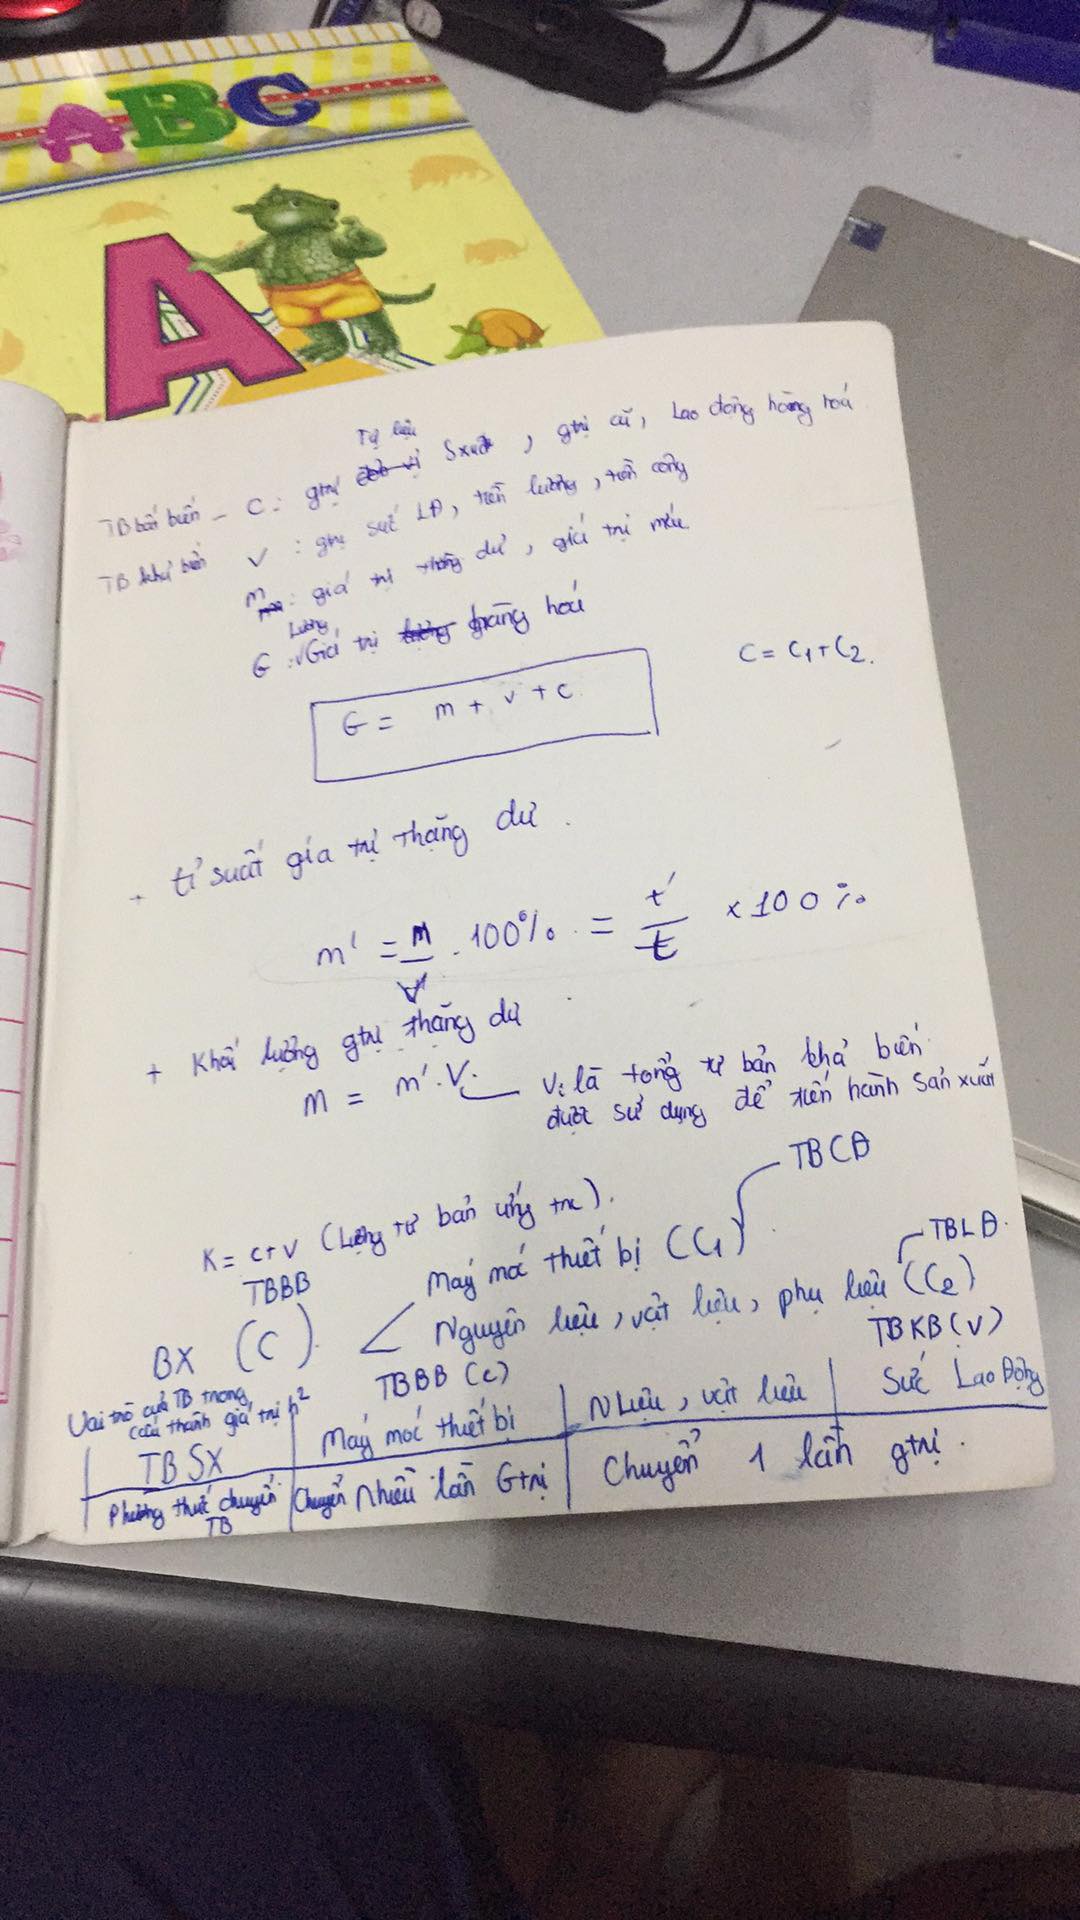 ABC
A
Tư liệu
TB bất biến - C : gtrị Sxuất, gtrị cũ, Lao động hàng hoá
TB khả biến V : gtrị sức LĐ, tiền lương, tiền công
m : giá trị thặng dư, giá trị mới
Lượng
G : Giá trị hàng hoá
C = C1 + C2.
G = m + v + c
+ tỉ suất gía trị thặng dư.
m' = m/v . 100% = t'/t x 100%
+ Khối lượng gtrị thặng dư
m = m'.V. V: là tổng tư bản khả biến
được sử dụng để tiến hành sản xuất
TBCĐ
K = c+v (Lượng tư bản ứng trc).
TBBB
Máy móc thiết bị (C1)
TBLĐ.
BX (C) < Nguyên liệu, vật liệu, phụ liệu (C2)
TBBB (c) TBKB (v)
Vai trò của TB trong
cấu thành giá trị h2
Máy móc thiết bị N Liệu, vật liệu Sức Lao Động
TBSX
Phương thức chuyển
TB
Chuyển nhiều lần Gtrị Chuyển 1 lần gtrị.